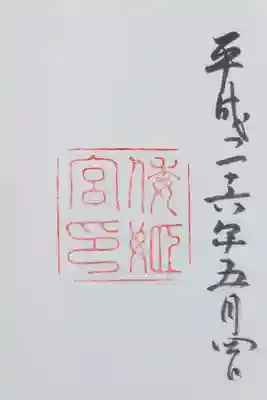 平成二十六年五月四日
倭姫
宮印